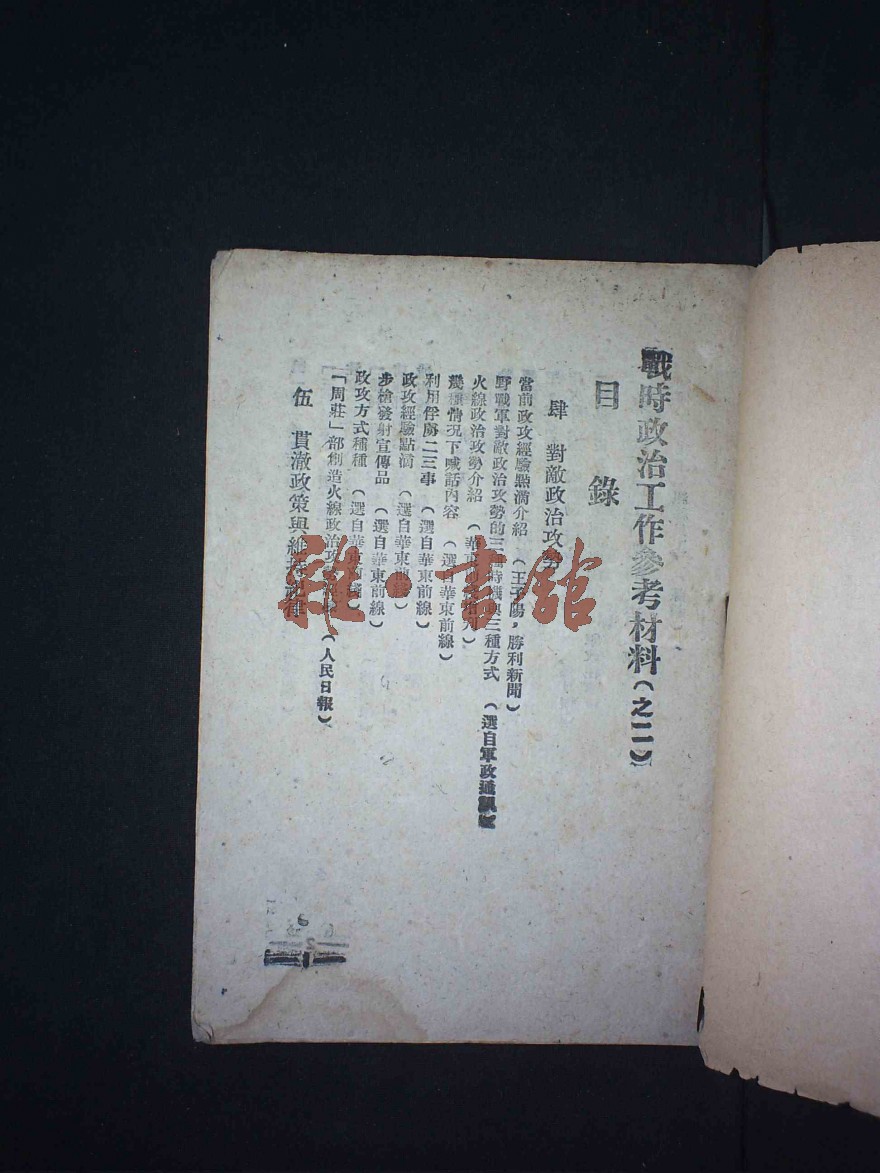 戰時政治工作參考材料(之二)
目錄
肆 對敵政治攻勢
當前政攻經驗點滴介紹 (王子陽,勝利新聞)
野戰軍對敵政治攻勢的三個時機與三種方式 (選自軍政通訊
火線政治攻勢介紹 (華東前線
幾種情况下喊話內容 (選自華東前線)
利用俘虜二三事 (選自華東前線)
政攻經驗點滴 (選自華東前線)
步槍發射宣傳品 (選自華東前線)
政攻方式種種 (選自華東前線)
「周莊」部創造火線政治攻 (人民日報)
伍 貫澈政策與維持紀律
雜·書館